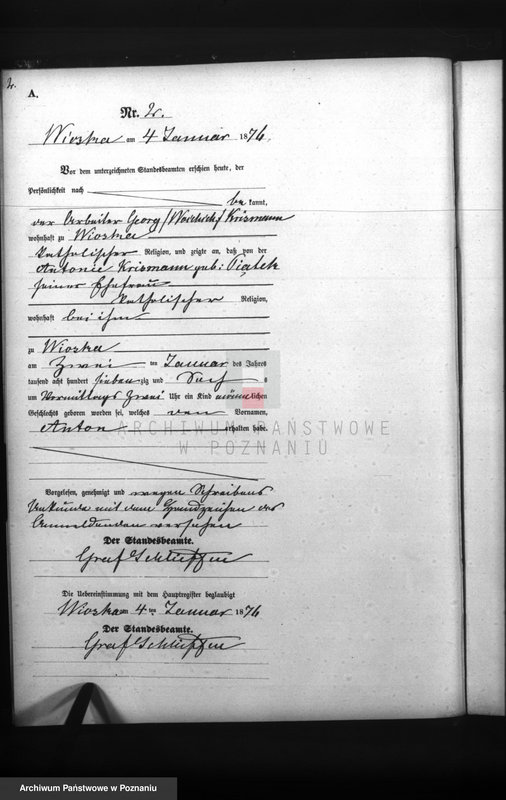 2.
A.
Nr. 2.
Wioska am 4 Januar 1876.
Vor dem unterzeichneten Standesbeamten erschien heute, der
Persönlichkeit nach
be kannt,
der Arbeiter Georg / / Krismann
wohnhaft zu Wioska
katholischer Religion, und zeigte an, daß von der
Antonie Krismann geb: Piątek
seiner Ehefrau
katholischer Religion,
wohnhaft bei ihm
zu Wioska
am Zwei ten Januar des Jahres
tausend acht hundert sieben zig und Sech s
um Vormittags Zwei Uhr ein Kind männlichen
Geschlechts geboren worden sei, welches den Vornamen,
Anton erhalten habe.
ARCHIWUM PAŃSTWOWE
W POZNANIU
Vorgelesen, genehmigt und wegen Schreibens
Unkunde mit dem Handzeichen des
Anmeldenden versehen
Der Standesbeamte.
Graf Schlieffen
Die Uebereinstimmung mit dem Hauptregister beglaubigt
Wioska am 4 ten Januar 1876
Der Standesbeamte.
Graf Schlieffen
Archiwum Państwowe w Poznaniu